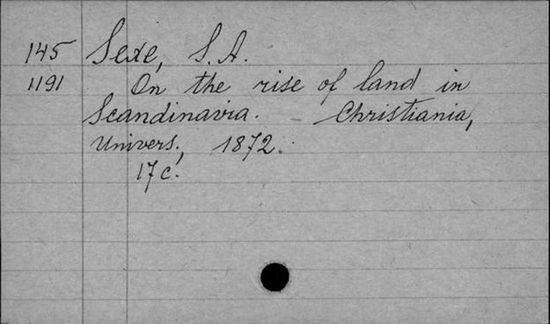 145 Sexe, S. A.
1191 On the rise of land in
Scandinavia. - Christiania,
Univers., 1872.
17 c.